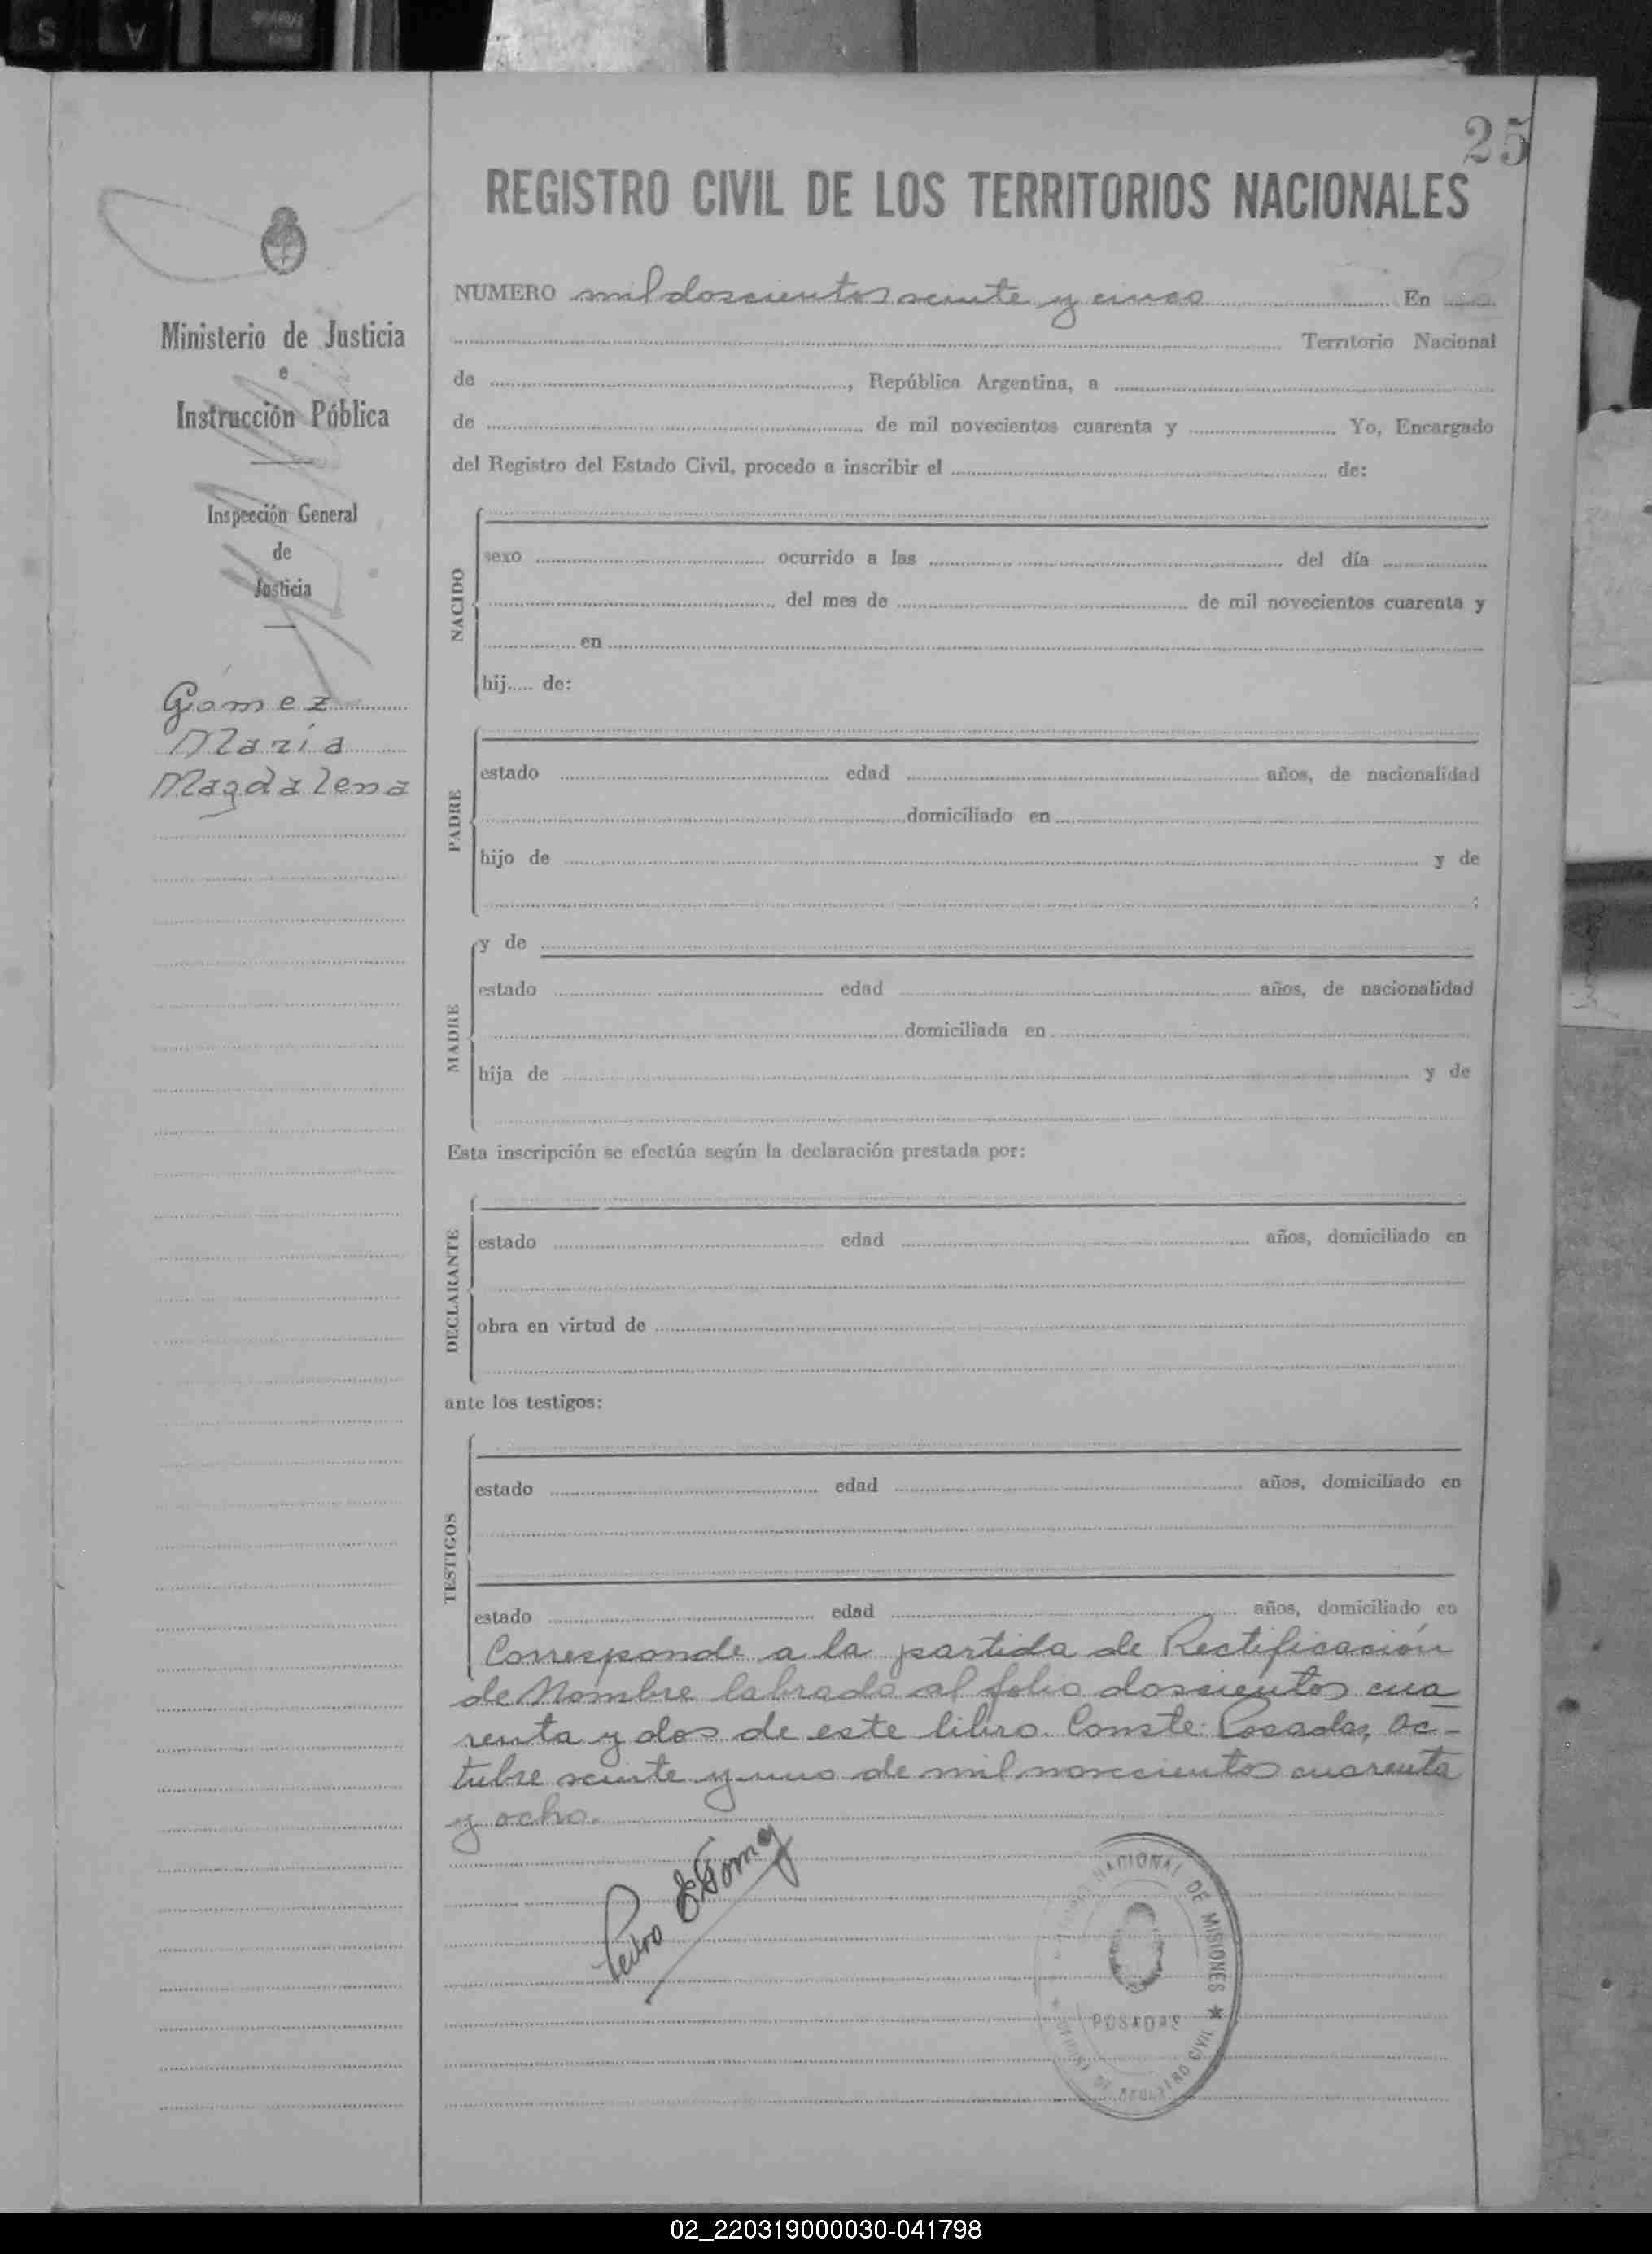 25
REGISTRO CIVIL DE LOS TERRITORIOS NACIONALES
Ministerio de Justicia
e
Instrucción Pública
Inspección General
de
Justicia
Gómez
María
Magdalena
NUMERO mil doscientos veinte y cinco En
Territorio Nacional
de , República Argentina, a
de de mil novecientos cuarenta y Yo, Encargado
del Registro del Estado Civil, procedo a inscribir el de:
NACIDO
sexo ocurrido a las del día
del mes de de mil novecientos cuarenta y
en
hij..... de:
PADRE
estado edad años, de nacionalidad
domiciliado en
hijo de y de
;
MADRE
y de
estado edad años, de nacionalidad
domiciliada en
hija de y de
Esta inscripción se efectúa según la declaración prestada por:
DECLARANTE
estado edad años, domiciliado en
obra en virtud de
ante los testigos:
TESTIGOS
estado edad años, domiciliado en
estado edad años, domiciliado en
Corresponde a la partida de Rectificación
de Nombre labrado al folio doscientos cua
renta y dos de este libro. Conste: Posadas, Oc-
tubre veinte y uno de mil novecientos cuarenta
y ocho.
Pedro
NACIONAL DE MISIONES ★
POSADAS
DE REGISTRO CIVIL
02_220319000030-041798